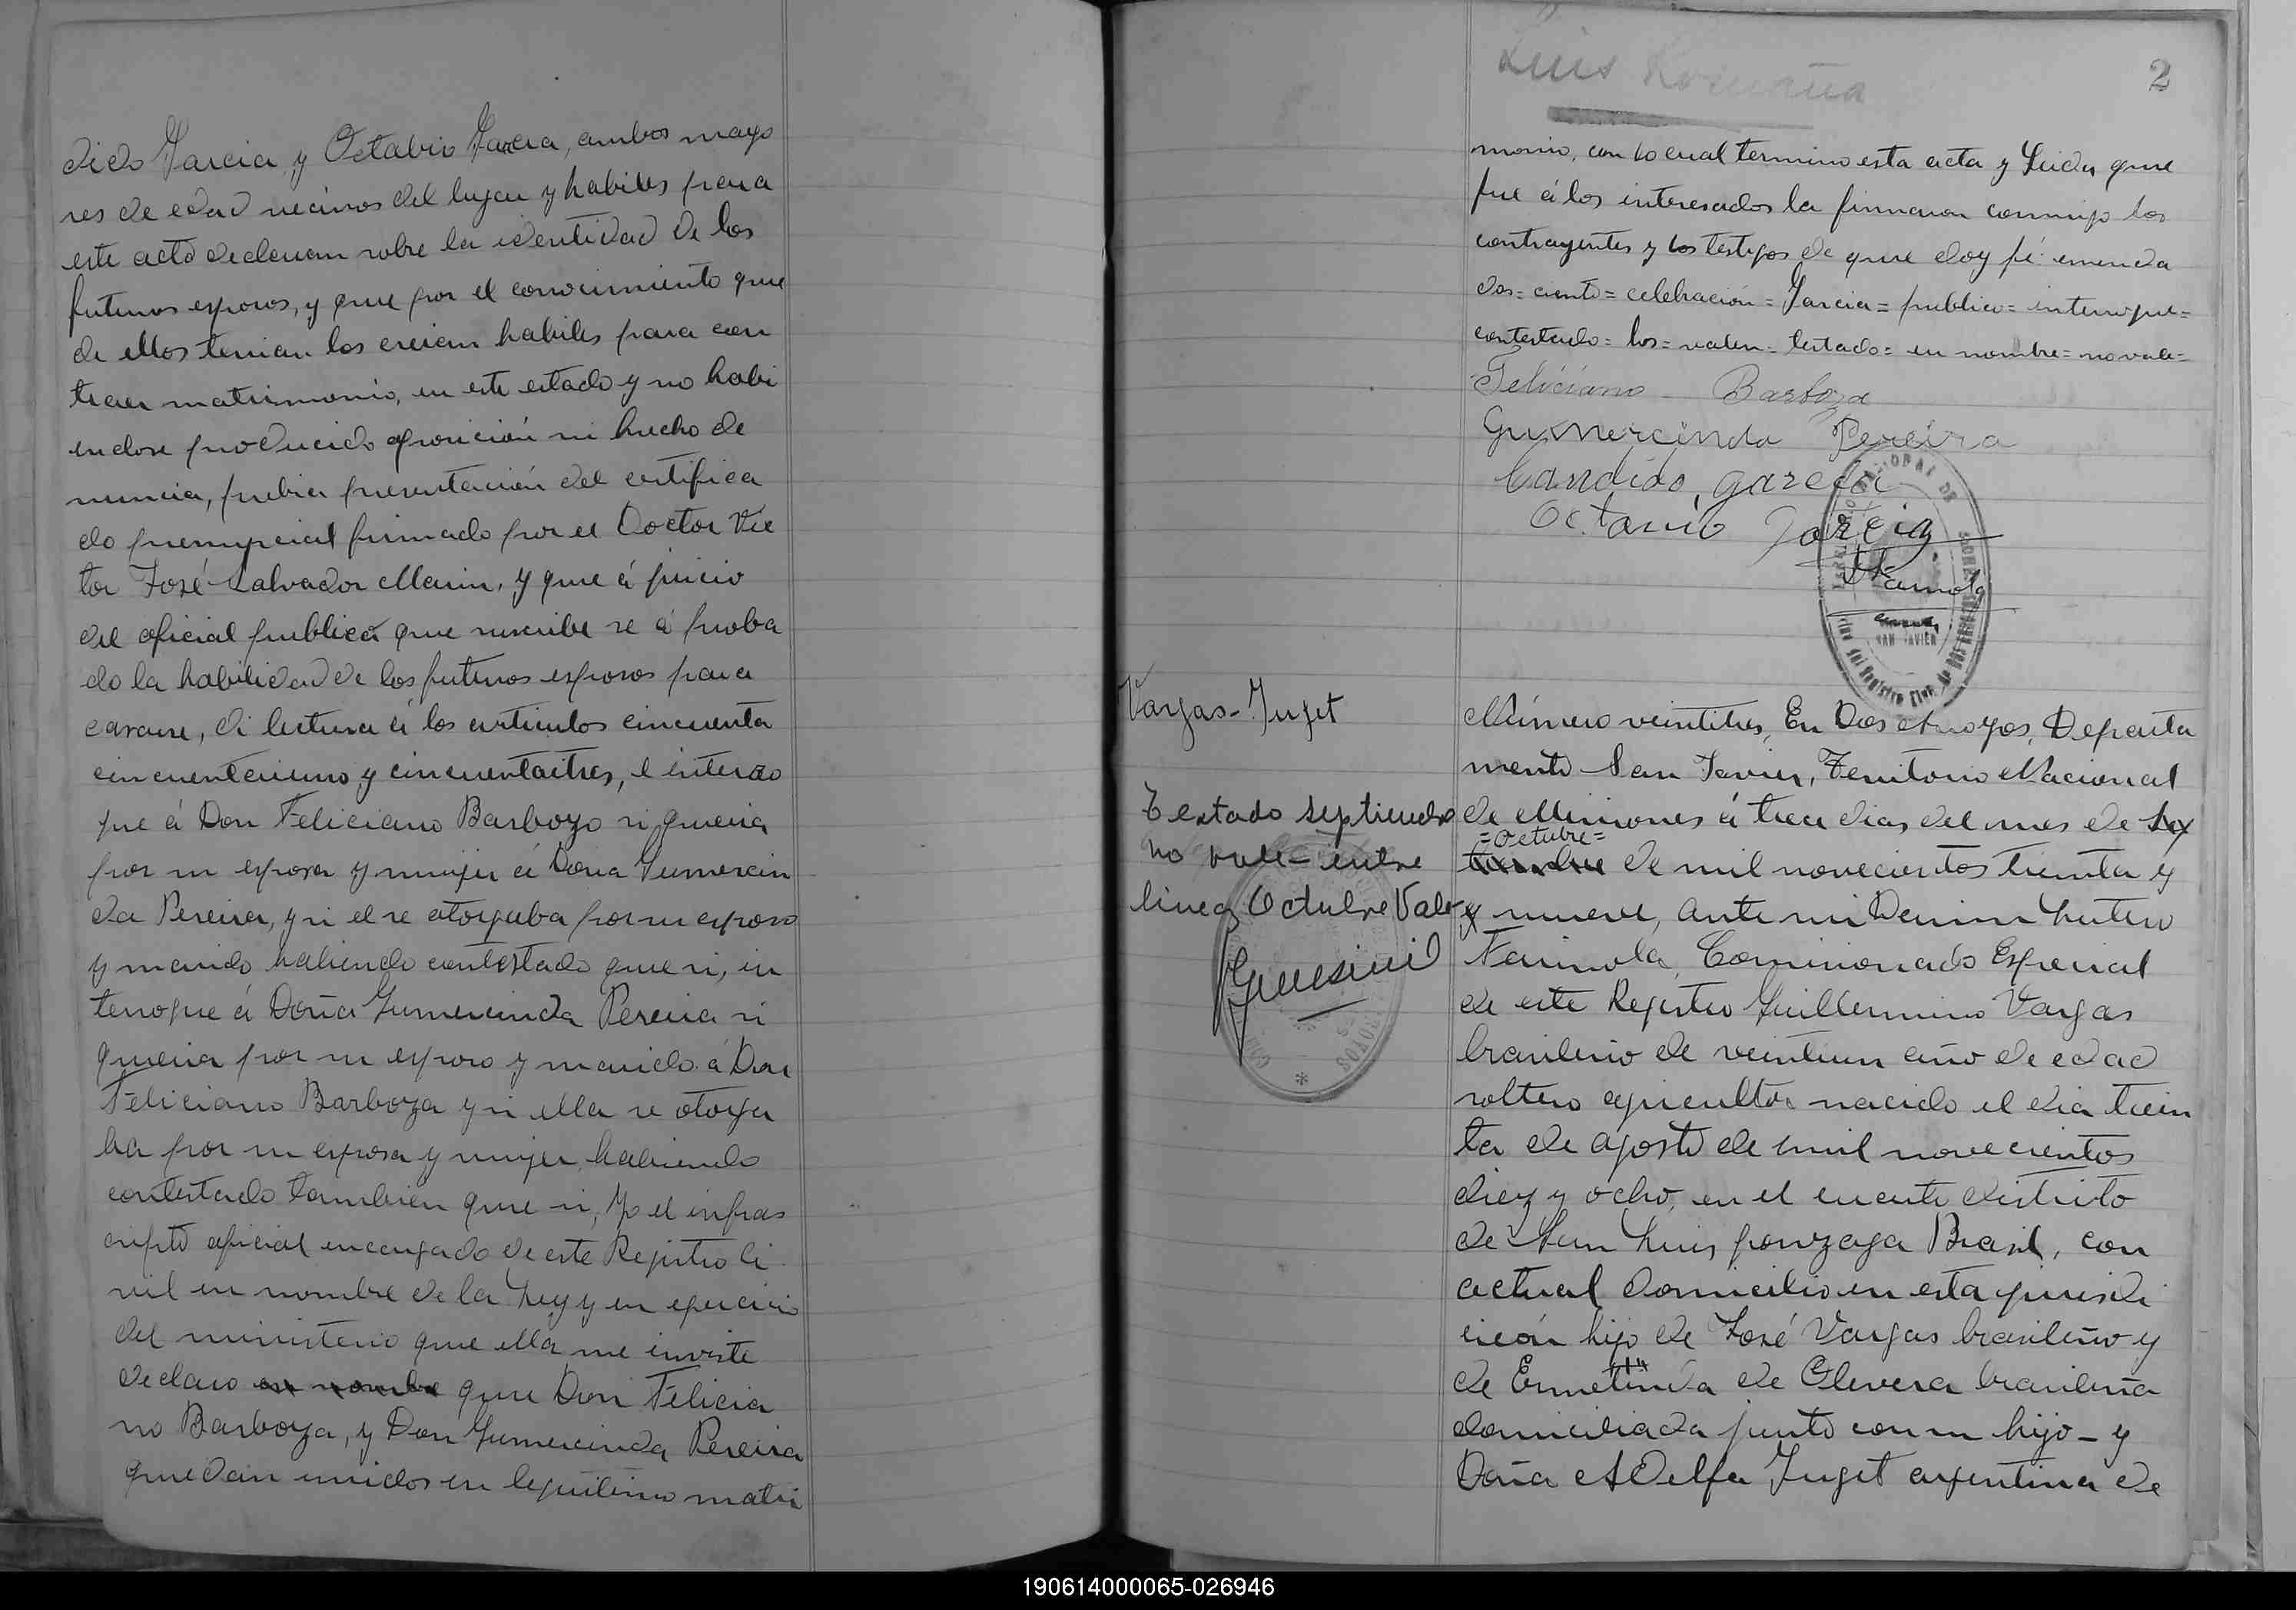 dido Garcia y Octabio Garcia, ambos mayo
res de edad vecinos del lugar y habiles para
este acto declaran sobre la identidad de los
futuros esposos, y que por el conocimiento que
de ellos tenian los creian habiles para con
traer matrimonio, en este estado y no habi
endose producido oposición ni hecho de
nuncia, prebia presentación del certifica
do prenupcial firmado por el Doctor Vic
tor José Salvador Marin, y que á juicio
del oficial publico que suscribe se á proba
do la habilidad de los futuros esposos para
casarse, di lectura á los articulos cincuenta
cincuentaiuno y cincuentaitres, e interro
gue á Don Feliciano Barboza si queria
por su esposa y mujer á Doña Gumercin
da Pereira, y si el se otorgaba por su esposo
y marido habiendo contestado que si, in
terrogue á Doña Gumercinda Pereira si
queria por su esposo y marido á Don
Feliciano Barboza y si ella se otorga
ba por su esposa y mujer, habiendo
contestado tambien que si, Yo el infras
cripto oficial encargado de este Registro Ci
vil en nombre de la Ley y en ejercicio
del ministerio que ella me inviste
declaro en nombre que Don Felicia
no Barboza, y Don Gumercinda Pereira
quedan unidos en legitimo matri
Luis Romaña
2
monio, con lo cual termino esta acta y Leida que
fue á los interesados la firmaron conmigo los
contrayentes y los testigos de que doy fé: enmenda
dos = ciento = celebración = Garcia = publico = interrogue =
contestado = los = valen = testado = en nombre = no vale =
Feliciano Barboza
Gumercinda Pereira
Candido Garcia
Octavio Garcia
SAN JAVIER
Vargas - Juget
Testado Septiembre
no vale - entre
linea Octubre Vale
Número veintitres, En Dos Arroyos, Departa
mento San Javier, Territorio Nacional
de Misiones á trece dias del mes de Sep
=Octubre=
tiembre de mil novecientos treinta y
y nueve, ante mi Denim Lutero
Farinola, Comisionado Especial
de este Registro Guillermino Vargas
brasilero de veintiun año de edad
soltero agricultor nacido el dia trein
ta de agosto de mil novecientos
diez y ocho, en el cuarto distrito
de San Luis gonzaga Brasil, con
actual domicilio en esta jurisdi
ción hijo de José Vargas brasileño y
de Ermelinda de Olivera brasileña
domiciliada junto con su hijo - y
Doña Adelfa Juget argentina de
190614000065-026946